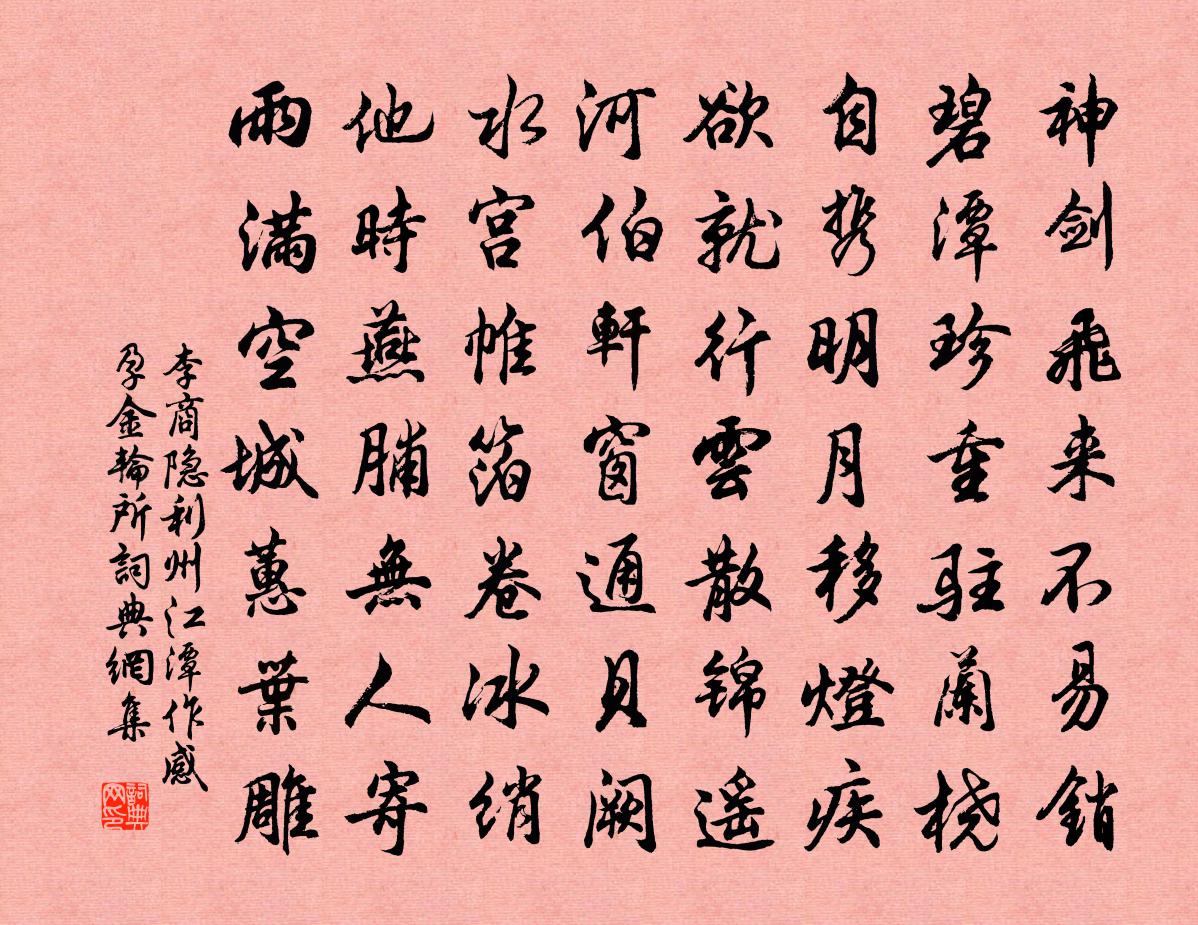 神剑飛来不易銷
碧潭珍重駐蘭橈
自携明月移燈疾
欲就行雲散錦遥
河伯軒窗通貝闕
水宫帷箔卷冰綃
他時燕脯無人寄
雨满空城蕙葉雕
李商隐利州江潭作感
孕金輪所詞典網集
詞典
网印